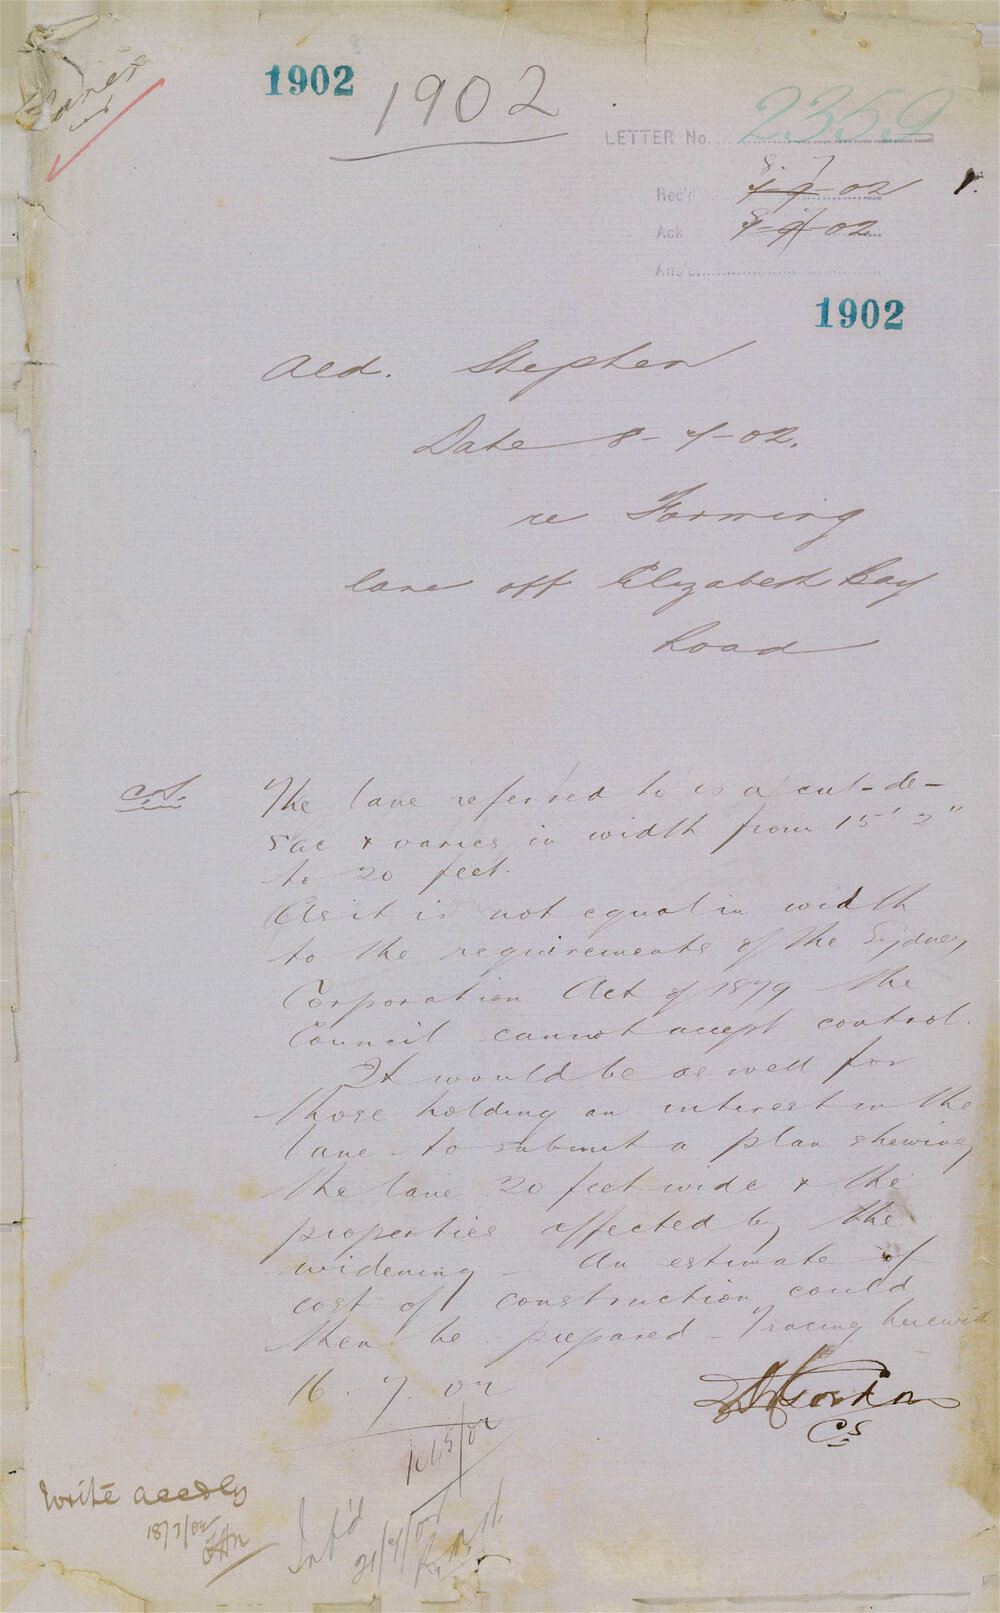 Lanes
1902
1902
LETTER No. 2359
8. 7
Rec'd 7-9-02
Ack 8-7-02
Ans'd
1902
Ald. Stephen
Date 8-7-02.
re Forming
lane off Elizabeth Bay
Road
C.S. The lane referred to is a cul-de-
sac & varies in width from 15' 2"
to 20 feet.
As it is not equal in width
to the requirements of the Sydney
Corporation Act of 1879 the
Council cannot accept control.
It would be as well for
those holding an interest in the
lane to submit a plan shewing
the lane 20 feet wide & the
properties affected by the
widening - An estimate of
cost of construction could
then be prepared - Tracing herewith
16.7.02
CS
1645/02
Write accdly
18/7/02
Inf'd
21/7/02